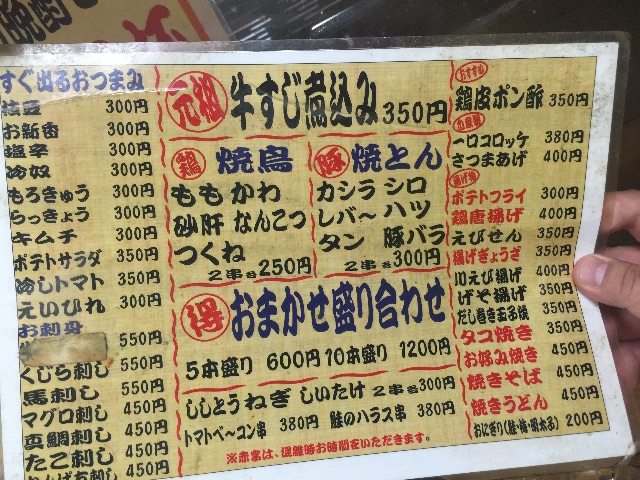 すぐ出るおつまみ
枝豆 300円
お新香 300円
塩辛 300円
冷奴 300円
もろきゅう 300円
らっきょう 300円
キムチ 300円
ポテトサラダ 350円
冷しトマト 350円
えいひれ 300円
お刺身
550円
くじら刺し 550円
馬刺し 550円
マグロ刺し 450円
真鯛刺し 450円
たこ刺し 450円
450円
元祖 牛すじ煮込み 350円
鶏 焼鳥
もも かわ
砂肝 なんこつ
つくね
2串各250円
豚 焼とん
カシラ シロ
レバ〜 ハツ
タン 豚バラ
2串各300円
得 おまかせ盛り合わせ
5本盛り 600円 10本盛り 1200円
ししとう ねぎ しいたけ 2串各300円
トマトベ〜コン串 380円 鮭のハラス串 380円
※赤字は、混雑時お時間をいただきます。
おすすめ
鶏皮ポン酢 350円
一口コロッケ 380円
さつまあげ 400円
揚げ物
ポテトフライ 300円
鶏唐揚げ 400円
えびせん 350円
揚げぎょうざ 350円
川えび揚げ 400円
げそ揚げ 350円
だし巻き玉子焼 350円
タコ焼き 350円
お好み焼き 400円
焼きそば 450円
焼きうどん 450円
おにぎり(鮭・梅・明太子) 200円